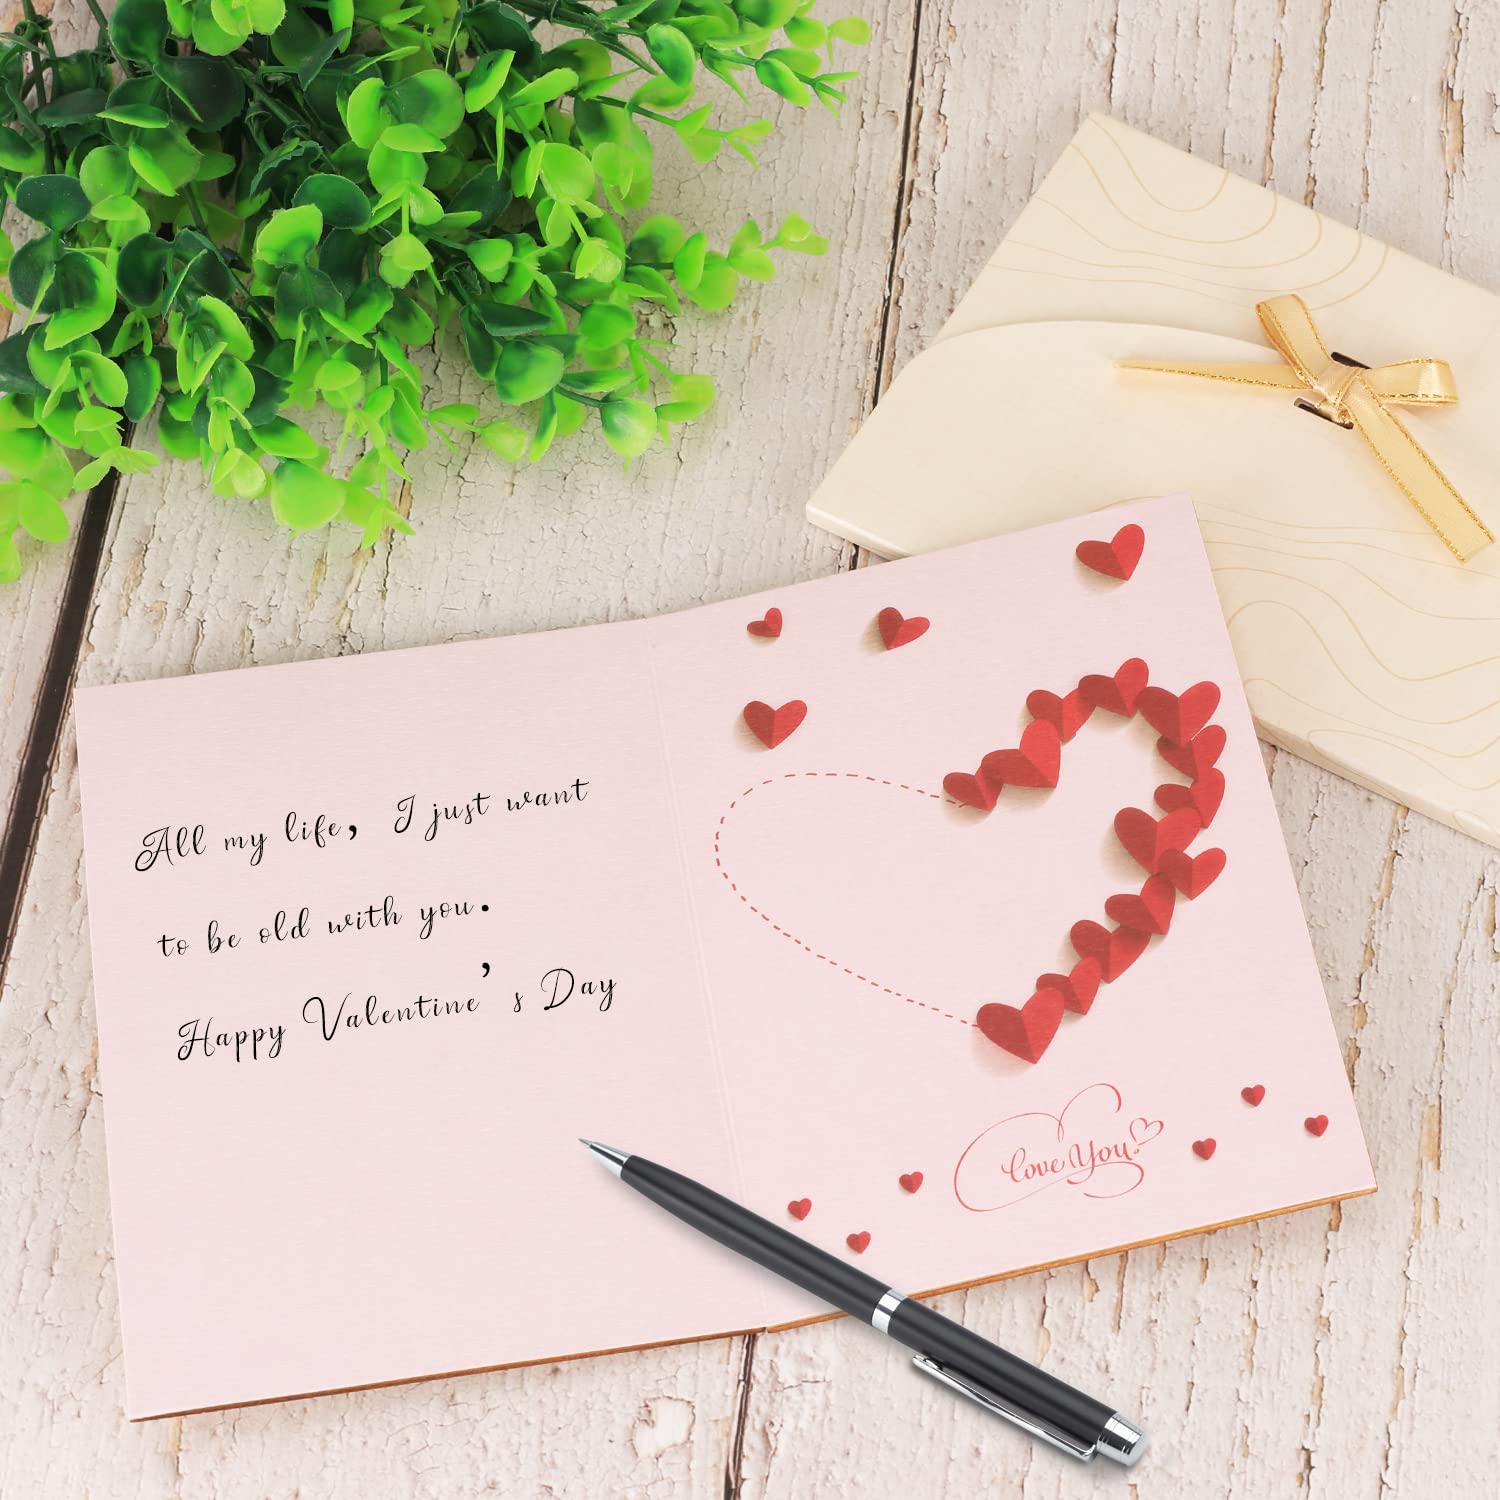 All my life, I just want
to be old with you.
Happy Valentine's Day
Love You!